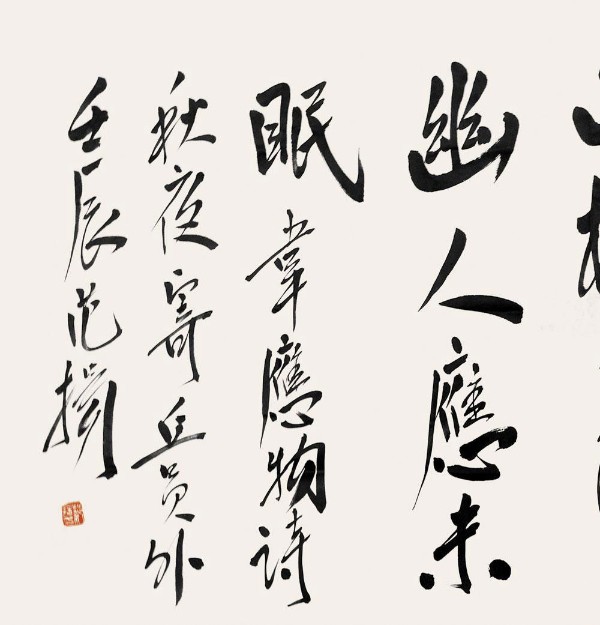 幽人應未
眠 韋應物詩
秋夜寄丘員外
壬辰范